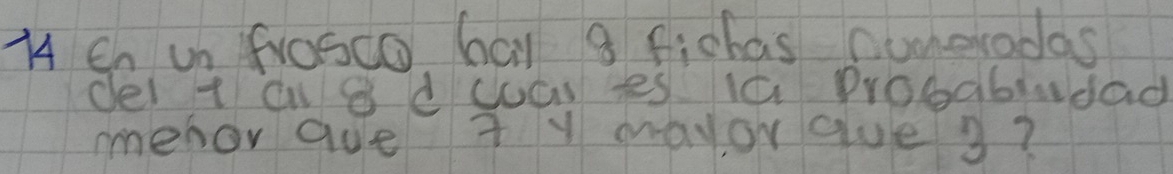 14 En un frasco hay 8 fichas numeradas
del 1 al 8 ¿ cual es la Probabilidad
menor que 7 y mayor que 3?